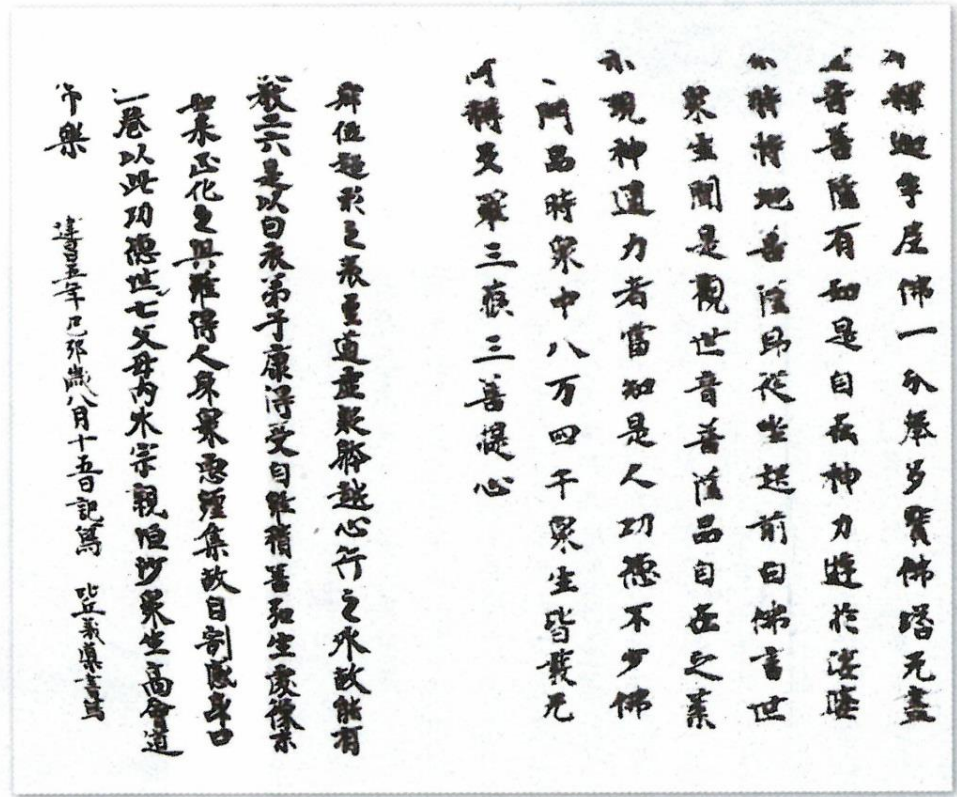 釋迦牟尼佛一分奉多寶佛塔无盡
音菩薩有如是自在神力遊於娑婆
尒時持地菩薩即從坐起前白佛言世
衆生聞是觀世音菩薩品自在之業
示現神通力者當知是人功德不少佛
門品時衆中八万四千衆生皆發无
阿耨多羅三藐三菩提心
位超形之表至道虛凝越心行之外故能有
二六是以白衣弟子康得受自惟積善生處像末
如來正化之興難得人身衆惡纏集故自割減身口
一卷以此功德世七父母內外宗親恒沙衆生高會道
常樂 建昌五年己卯歲八月十五日記寫 比丘義書寫